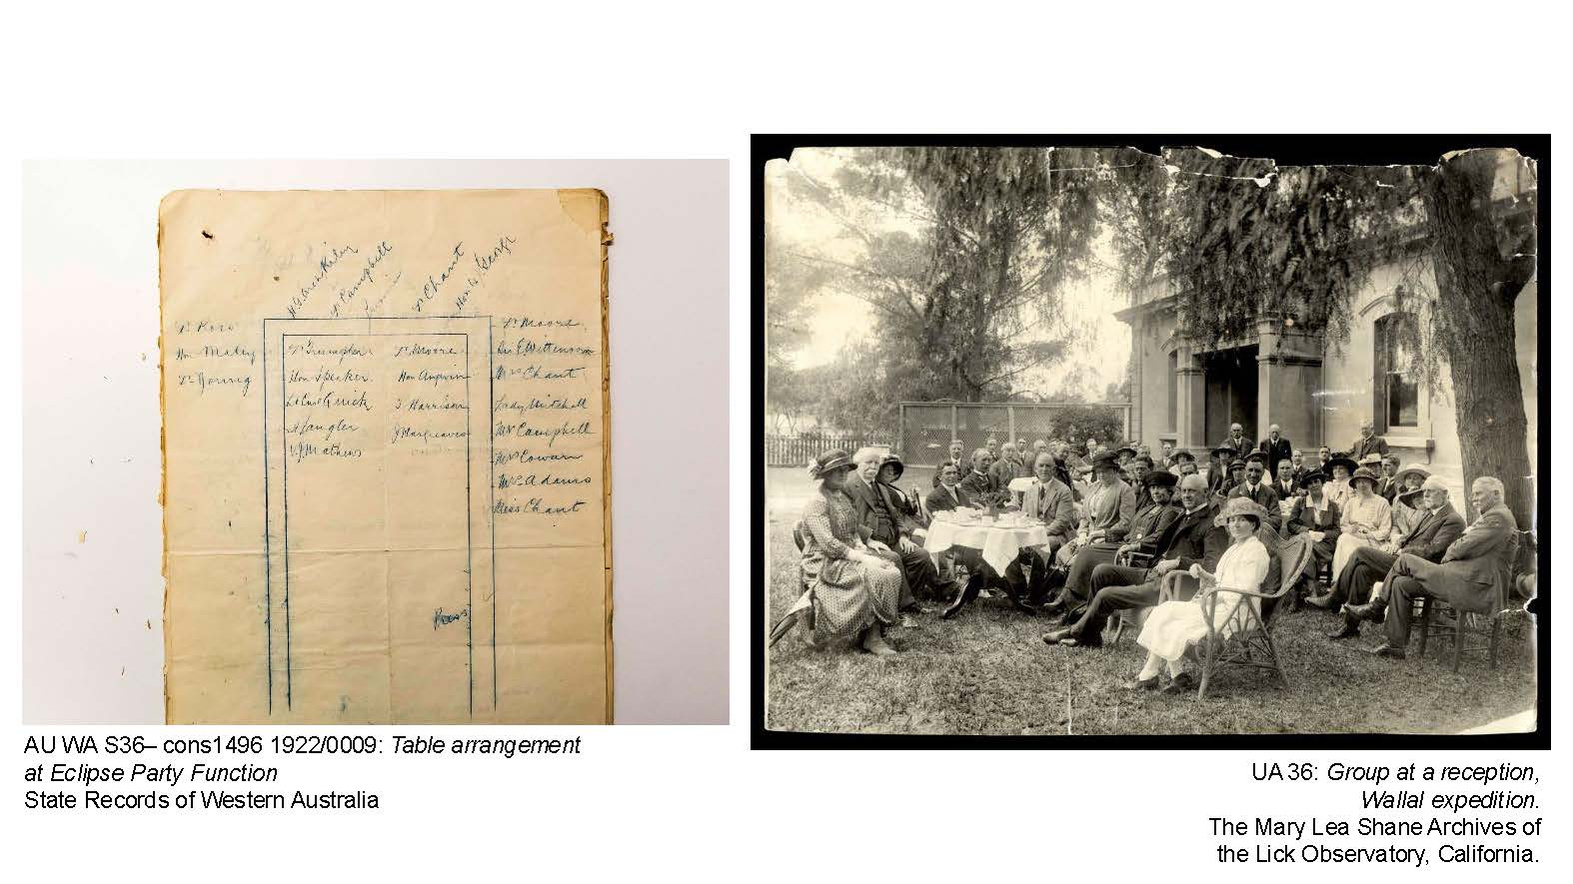 Dr Campbell
Dr Chant
Hon W George
Dr Ross
Hon Maley
Dr Young
Dr Trumpler
Hon Speaker
A Langler
V J Mathews
Dr Moore
Hon Angwin
J Harrison
J Hargreaves
Press
Dr Moore
Sir E Wittenoom
Mrs Chant
Lady Mitchell
Mrs Campbell
Mrs Cowan
Mrs Adams
Miss Chant
AU WA S36– cons1496 1922/0009: Table arrangement
at Eclipse Party Function
State Records of Western Australia
UA 36: Group at a reception,
Wallal expedition.
The Mary Lea Shane Archives of
the Lick Observatory, California.